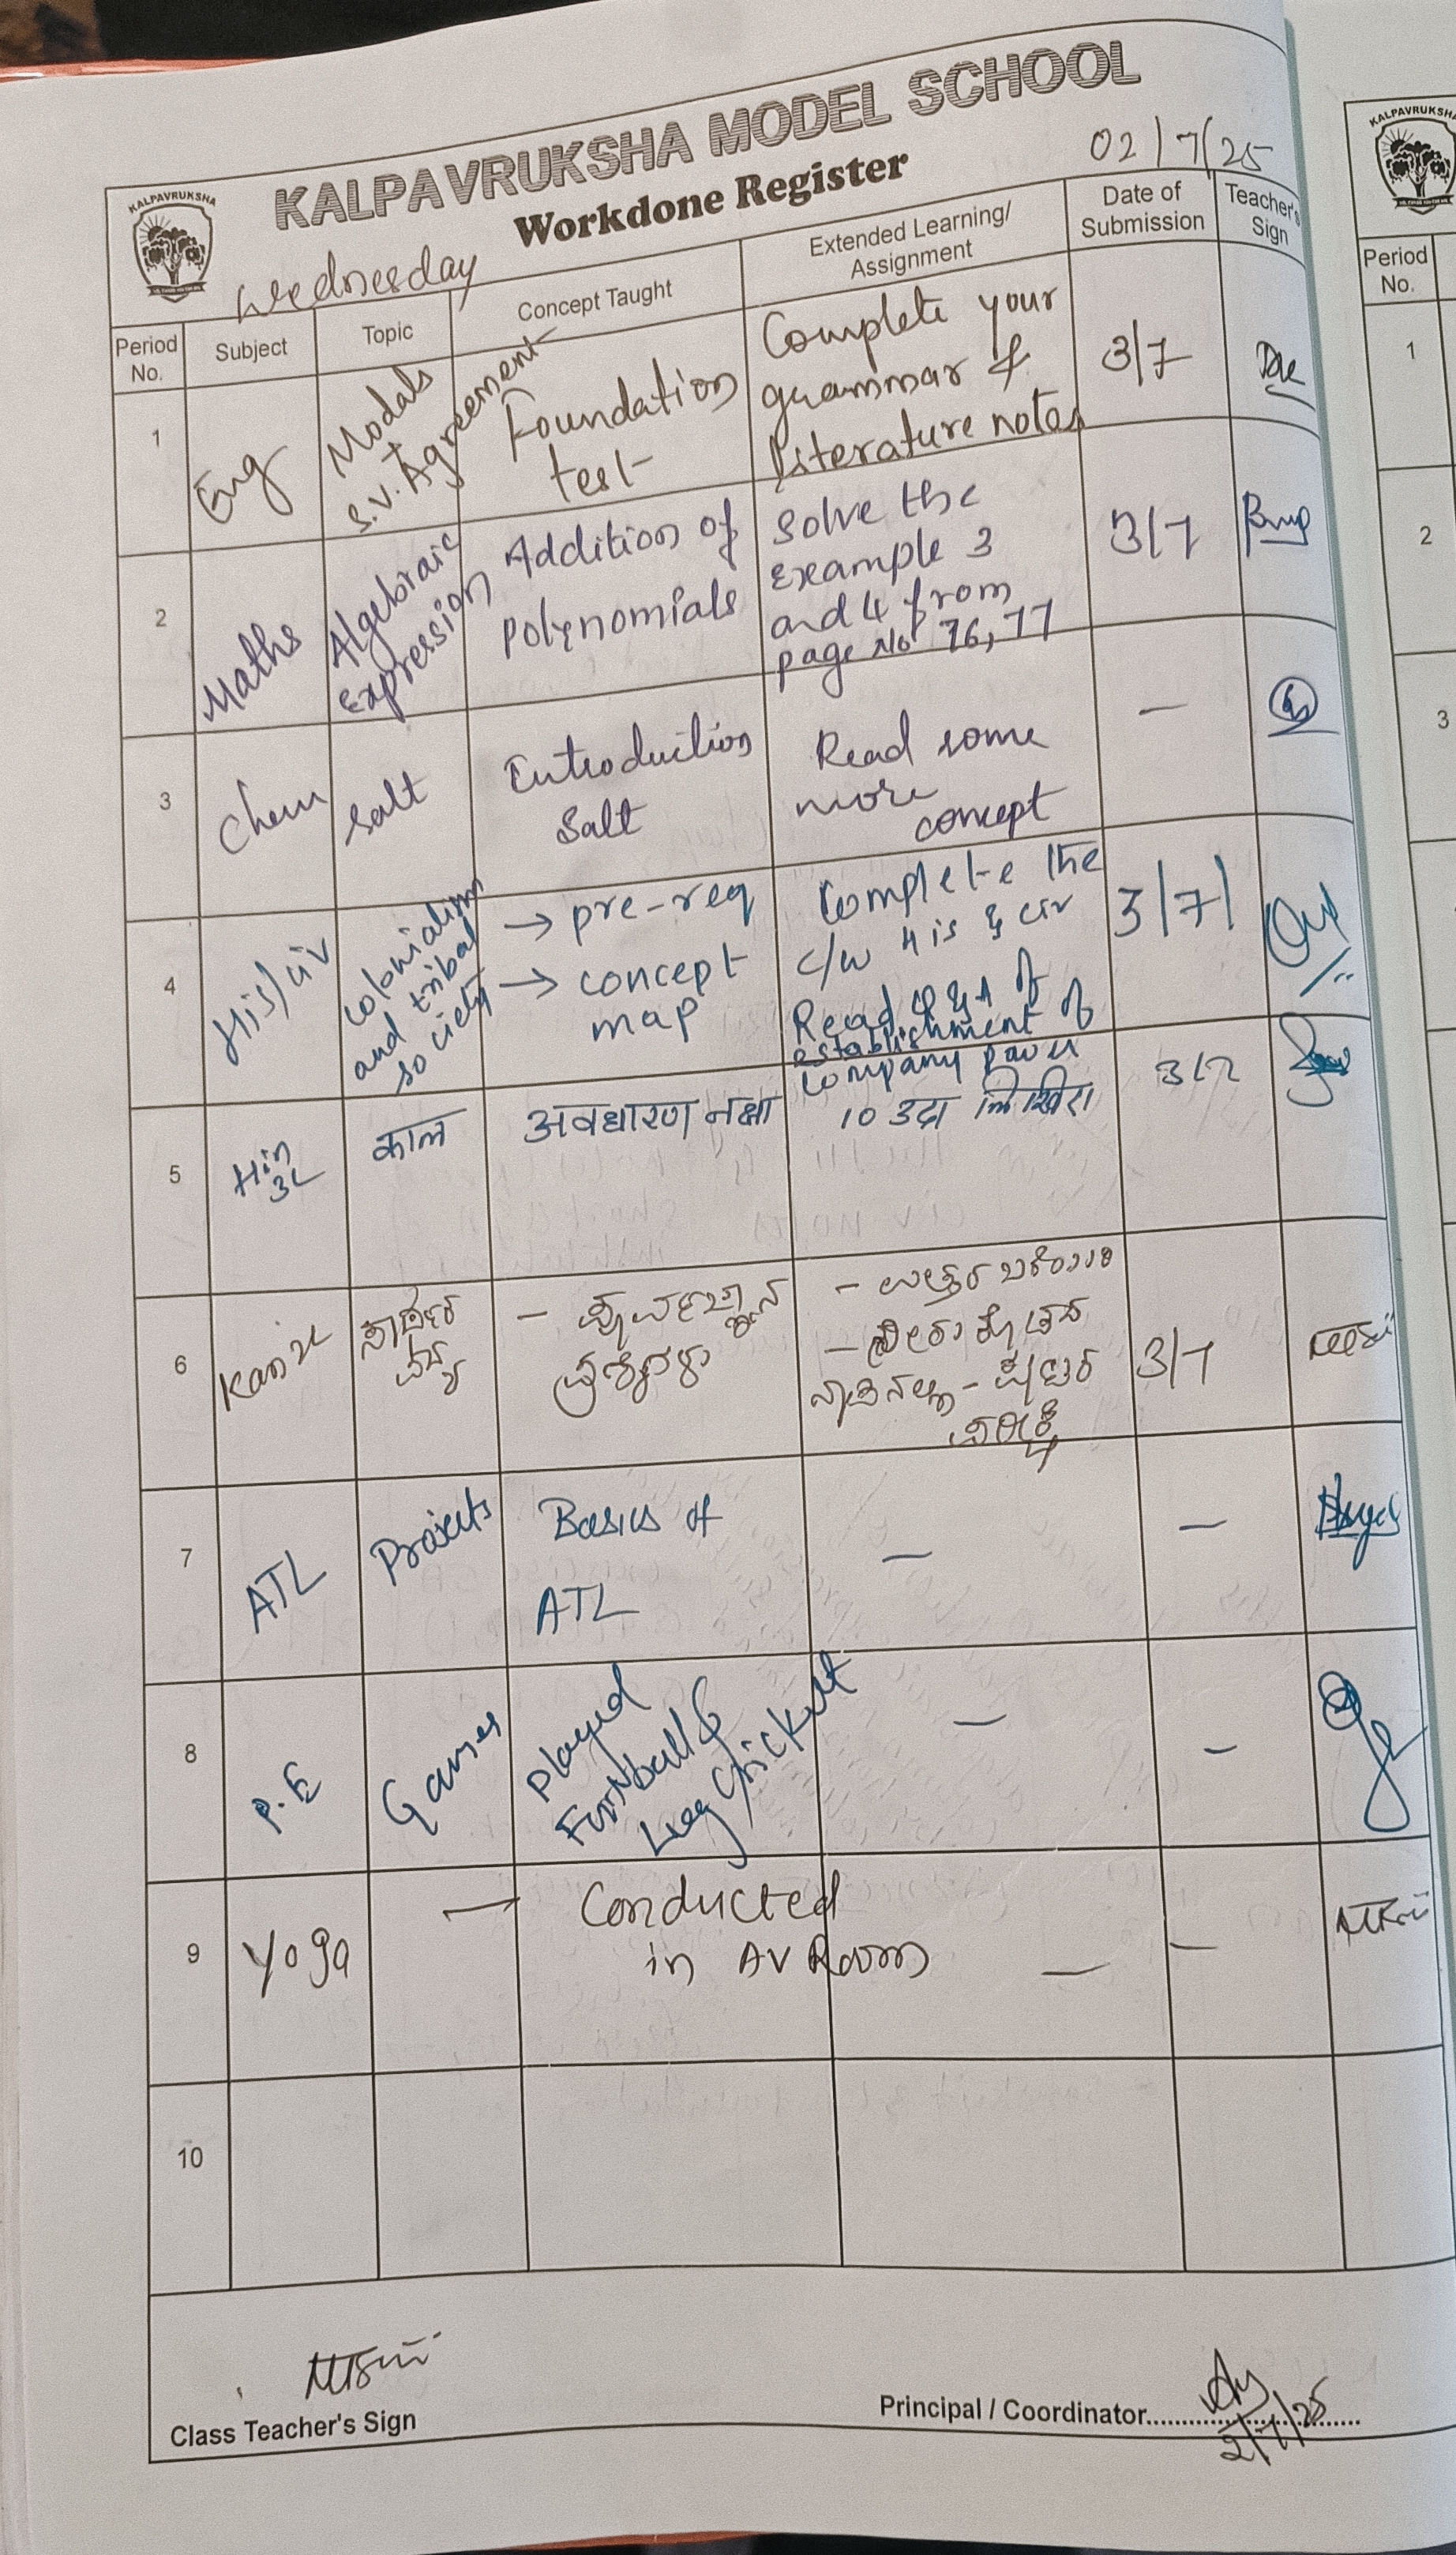 KALPAVRUKSHA MODEL SCHOOL
Workdone Register
02/7/25
KALPAVRUKSHA
Wednesday
Period No.
Subject
Topic
Concept Taught
Extended Learning/ Assignment
Date of Submission
Teacher's Sign
1
Eng
Modals
S.V. Agreement
Foundation
test
Complete your
grammar &
literature notes
3/7
2
Maths
Algebraic
Expression
Addition of
Polynomials
Solve the
example 3
and 4 from
page No 76, 77
3/7
3
Chem
Salt
Introduction
Salt
Read some
more
concept
—
4
His/civ
Colonialism
and tribal
society
→ pre-req
→ concept
map
Complete the
C/W His & Civ
Read Q & A of
establishment of
Company power
3/7/
5
Hin
3L
काल
अवधारण नक्षा
10 उदा लिखिए
3/7
6
Kan
— ಪೂರ್ವಜ್ಞಾನ
ಪ್ರಶ್ನೆಗಳು
— ಉತ್ತರ
3/7
7
ATL
Projects
Basics of
ATL
—
—
8
P.E
Games
Played
Football &
Leg Crickett
—
—
9
Yoga
—
Conducted
in AV Room
—
—
10
Class Teacher's Sign
Principal / Coordinator
2/7/25
KALPAVRUKSHA
Period No.
1
2
3